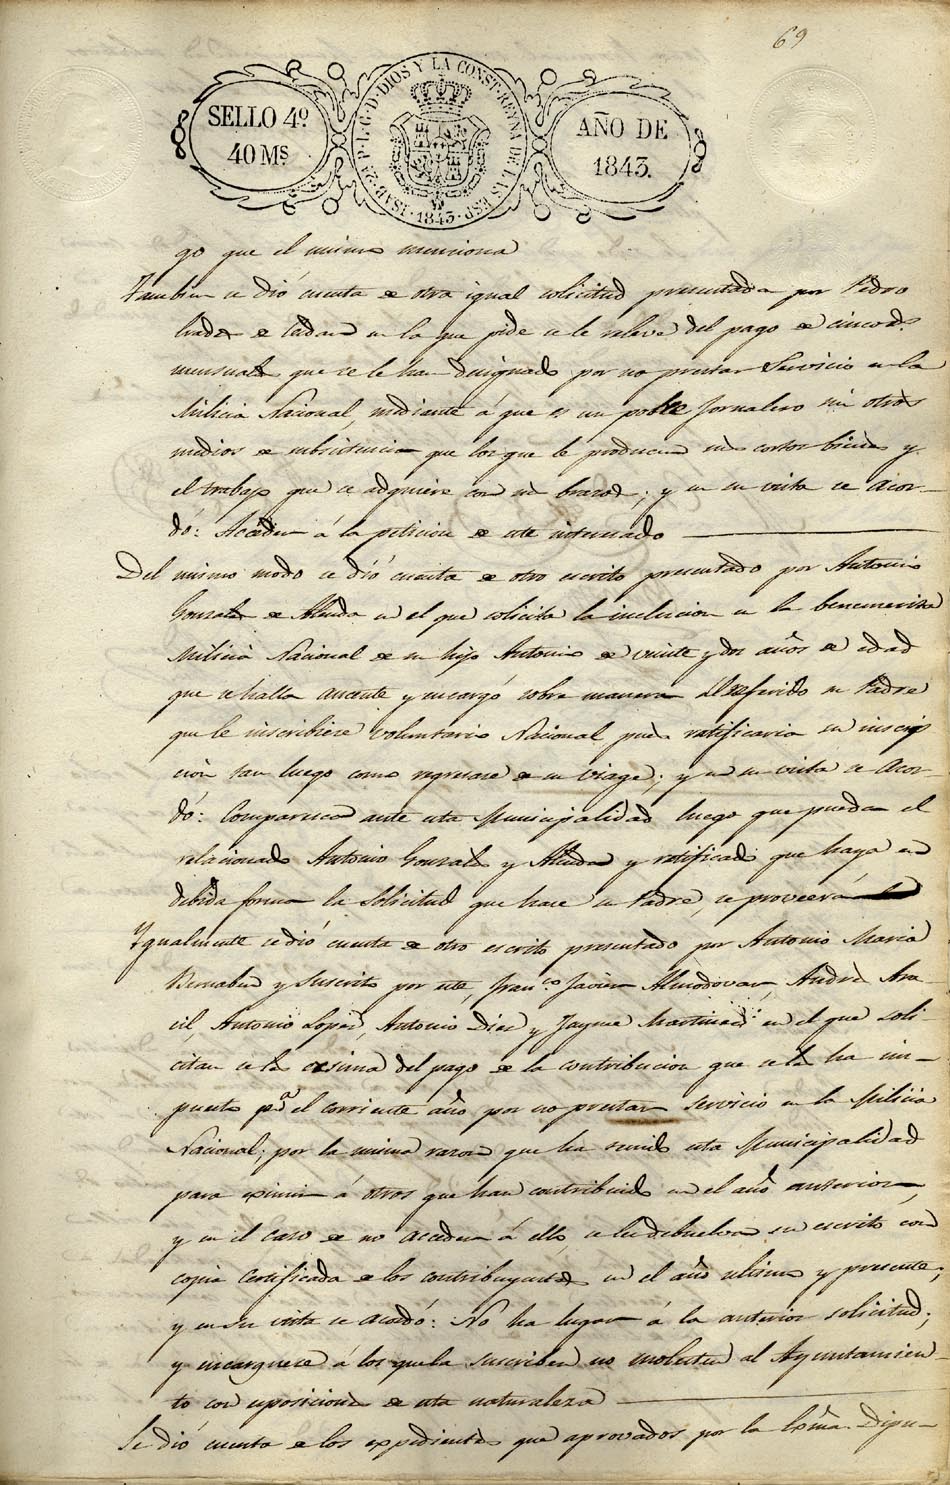 69
SELLO 4º
40 Ms
ISAB. 2ª P. L. G. D. DIOS Y LA CONST. REYNA DE LAS ESP. 1843.
AÑO DE
1843.
go que el mismo menciona
Tambien se dió cuenta de otra igual solicitud presentada por Pedro
de en la que pide se le releve del pago de cinco rs.
mensuales que se le han designado por no prestar Servicio en la
Milicia Nacional, mediante á que es un pobre Jornalero sin otros
medios de subsistencia que los que le producen sus cortos bienes y
el trabajo que se adquiere con sus brazos; y en su vista se acor-
dó: Acceder á la peticion de este interesado
Del mismo modo se dió cuenta de otro escrito presentado por Antonio
Gonzalez de en el que solicita la inclucion en la benemerita
Milicia Nacional de su hijo Antonio de veinte y dos años de edad
que se halla ausente y encargó sobre manera al referido su Padre
que le inscribiese voluntario Nacional pues ratificaria su inscrip
cion tan luego como regresare de su viage; y en su vista se acor-
dó: Comparezca ante esta Municipalidad luego que pueda el
relacionado Antonio Gonzalez y y ratificado que haya en
debida forma la solicitud que hace su Padre, se proveerá
Ygualmente se dió cuenta de otro escrito presentado por Antonio Maria
Bernabeu y suscrito por este, Franco. Javier Almodovar, Andres Ara-
cil, Antonio Lopez, Antonio Diez y Jayme Martinez en el que soli-
citan se les exsima del pago de la contribucion que se les ha im-
puesto pa. el corriente año por no prestar servicio en la Milicia
Nacional; por la misma razon que ha tenido esta Municipalidad
para eximir á otros que han contribuido en el año anterior,
y en el caso de no acceder á ello, se les debuelva su escrito con
copia certificada de los contribuyentes en el año ultimo y presente;
y en su vista se acordó: No ha lugar á la anterior solicitud;
y encarguese á los que la suscriben no molesten al Ayuntamien-
to con esposiciones de esta naturaleza
Se dió cuenta de los expedientes que aprovados por la Exma. Dipu-